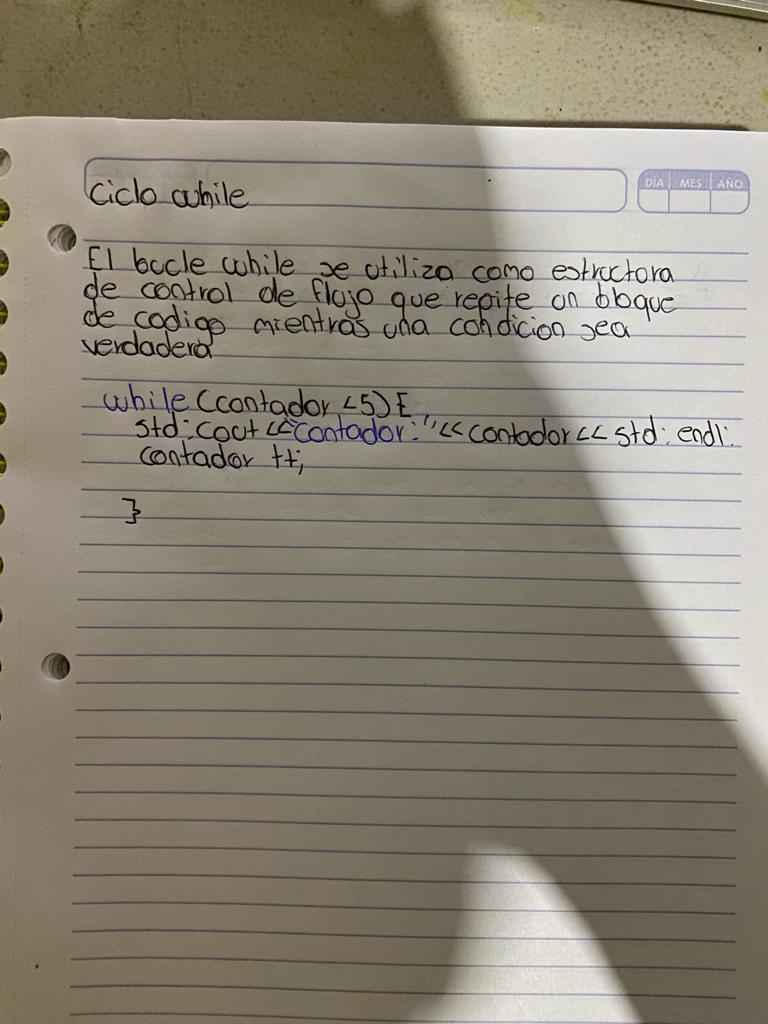 Ciclo while
DÍA MES AÑO
El bucle while se utiliza como estructura
de control de flujo que repite un bloque
de codigo mientras una condicion sea
verdadera
while (contador <5) {
std:cout <<"contador:"<< contador << std: endl:
contador ++;
}